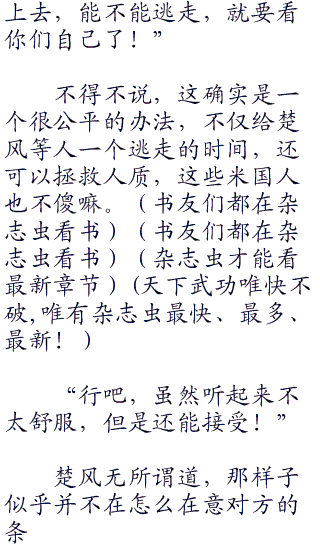 上去，能不能逃走，就要看
你们自己了！”
不得不说，这确实是一
个很公平的办法，不仅给楚
风等人一个逃走的时间，还
可以拯救人质，这些米国人
也不傻嘛。（书友们都在杂
志虫看书）（书友们都在杂
志虫看书）（杂志虫才能看
最新章节）(天下武功唯快不
破,唯有杂志虫最快、最多、
最新！）
“行吧，虽然听起来不
太舒服，但是还能接受！”
楚风无所谓道，那样子
似乎并不在怎么在意对方的
条